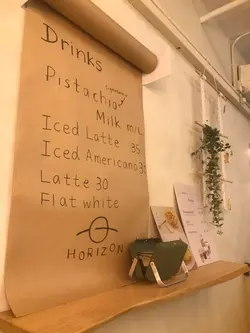 Drinks
Pistachio
Milk
Iced Latte 35
Iced Americano
Latte 30
Flat white
HORIZON